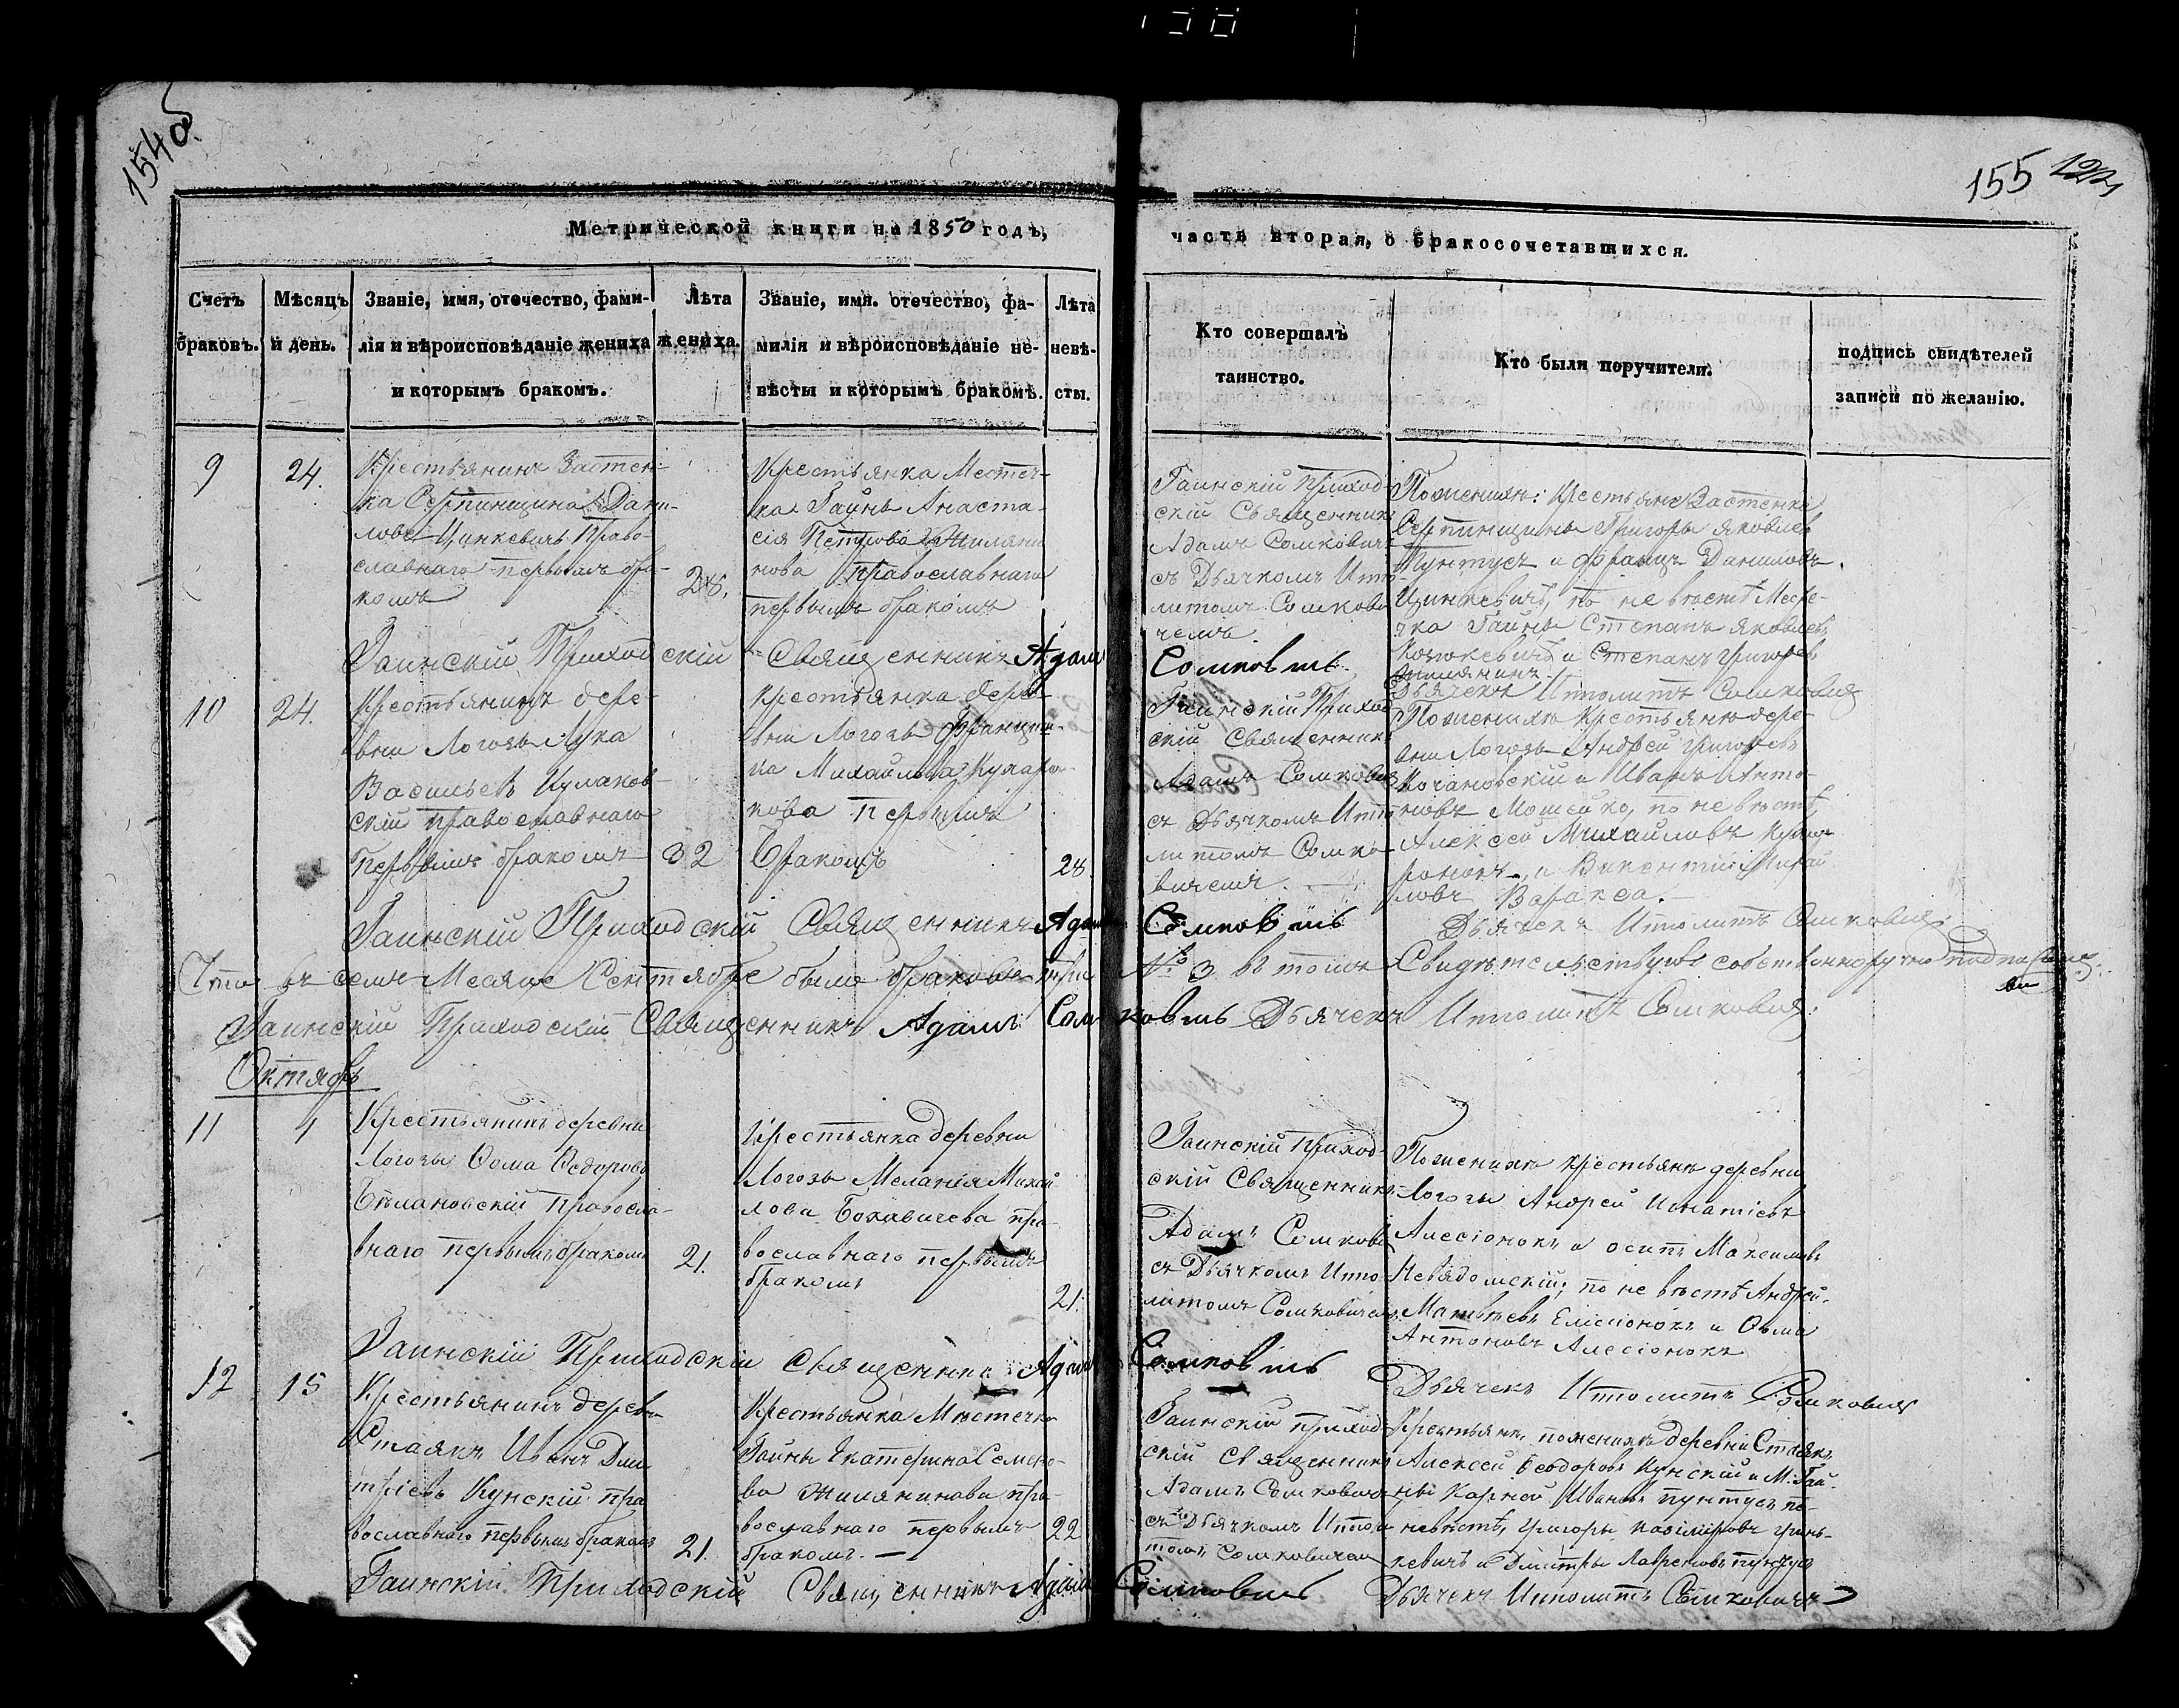 154об.
155
Метрической книги на 1850 годъ,
часть вторая, о бракосочетавшихся.
Счетъ браковъ.
Мѣсяцъ и день.
Званіе, имя, отечество, фами-
лія и вѣроисповѣданіе жениха
и которымъ бракомъ.
Лѣта жениха.
Званіе, имя. отечество, фа-
милія и вѣроисповѣданіе не-
вѣсты и которымъ бракомъ.
Лѣта невѣ-
сты.
Кто совершалъ
таинство.
Кто были поручители.
подпись свидѣтелей
записи по желанію.
9
24.
Крестьянинъ Застен-
ка Серпинщина Дани-
ловъ Цинкевичъ Право-
славнаго первымъ бра-
комъ
28.
Крестьянка Местеч-
ка Гайны Анаста-
сія Петрова Жиляни
нова Православнаго
первымъ бракомъ
Гаинскій Приход-
скій Священникъ
Адамъ Сомковичъ
съ Дьячкомъ Иппо-
литомъ Сомкови
чемъ
По женихѣ: Крестьяне Застенка
Серпинщины Григоры Яковлев
Пунтусъ и Францъ Даниловъ
Цинкевичъ, по невѣстѣ Месте-
чка Гайны Степанъ Яковлевъ
и Степанъ Григорев
Жилянинъ
Гаинскій Приходскій Священникъ Адамъ Сомковичъ
Дьячекъ Ипполитъ Сомковичъ
10
24.
Крестьянинъ дере-
вни Логозы Лука
Васильевъ Кулаков-
скій православнаго
Первымъ бракомъ
32
Крестьянка дере-
вни Логозы Францишк-
ка Михайлова Кухаро-
нова Первымъ
Бракомъ
28.
Гаинскій Приход
скій Священникъ
Адамъ Сомковичъ
съ Дьячкомъ Иппо
литомъ Сомко-
вичемъ.
По женихѣ Крестьяне дере-
вни Логозы Андрей Григоревъ
Кочановскій и Иванъ Анто-
новъ Мошейко, по невѣстѣ,
Алексей Михайловъ Куха
ронокъ, и Викентій Михай
ловъ Варакса.
Гаинскій Приходскій Священникъ Адамъ Сомковичъ
Дьячекъ Ипполитъ Сомковичъ
Что въ семъ Месяце Сентябре было браковъ три № 3 въ томъ Свидѣтельствуемъ собственноручно подписомъ
Гаинскій Приходскій Священникъ Адамъ Сомковичъ Дьячекъ Ипполитъ Сомковичъ
Октябрь
11
1
Крестьянинъ деревни
Логозы Фома Федоровъ
Бѣлановскій Правосла-
внаго первымъ бракомъ
21.
Крестьянка деревни
Логозы Меланія Михай
лова Бохавичева пра-
вославнаго первымъ
бракомъ
21.
Гаинскій Приход-
скій Священникъ
Адамъ Сомкович
съ Дьячкомъ Иппо
литомъ Сомковичемъ
По женихѣ крестьяне деревни
Логозы Андрей Игнатіевъ
Алесіонокъ и осипъ Максимовъ
Невядомскій; по невѣстѣ Андрей
Матвѣевъ Елісіонокъ и Фома
Антоновъ Алесіонокъ
Гаинскій Приходскій Священникъ Адамъ Сомковичъ
Дьячекъ Ипполитъ Сомковичъ
12
15
Крестьянинъ дерев
Стаякъ Иванъ Дми
тріевъ Кунскій пра
вославнаго первымъ бракомъ
21.
Крестьянка Мѣстечка
Гайны Екатерина Семено-
ва Жилянинова пра-
вославнаго первымъ
бракомъ.
22
Гаинскій приход
скій Священникъ
Адамъ Сомковичъ
съ Дьячкомъ Иппол
томъ Сомковичем
Крестьяне, по женихѣ деревни Стаякъ
Алексей Феодоровъ Кунскій и М. Гай-
ны Карней Ивановъ Пунтусъ по
невѣстѣ, Григоры Казіміровъ Гринь-
кевичъ и Дмитры Лавреновъ Пунтус
Гаинскій Приходскій Священникъ Адамъ Сомковичъ
Дьячекъ Ипполитъ Сомковичъ